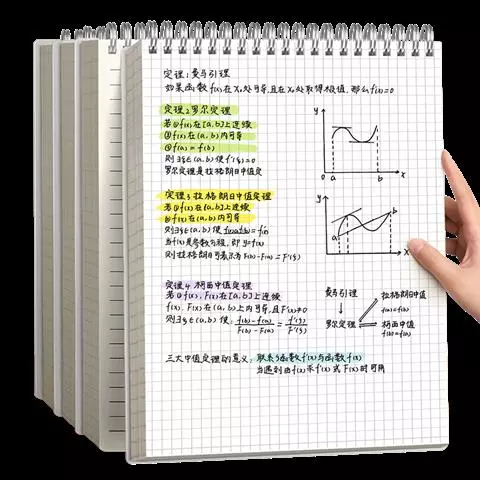 定理1 费马引理
如果函数 f(x) 在 x₀ 处可导,且在 x₀ 处取得极值,那么 f'(x)=0
定理2 罗尔定理
若①f(x)在[a,b]上连续
②f(x)在(a,b)内可导
③f(a)=f(b)
则∃ξ∈(a,b)使f'(ξ)=0
罗尔定理是拉格朗日中值定
定理3 拉格朗日中值定理
若①f(x)在[a,b]上连续
②f(x)在(a,b)内可导
则∃ξ∈(a,b)使
当f(x)是参数方程,即y=f(x)
则拉格朗日可表示为F(b)-F(a)=F'(ξ)
定理4 柯西中值定理
若①f(x),F(x)在[a,b]上连续
f(x),F(x)在(a,b)内可导,且F'(x)≠0
则∃ξ∈(a,b)使:f(b)-f(a)/F(b)-F(a)=f'(ξ)/F'(ξ)
三大中值定理的意义:联系了函数f'(x)与函数f(x)
当遇到由f(x)求f'(x)或F(x)时可用
y
0
a
b
x
y
a
b
x
费马引理
罗尔定理
拉格朗日中值
f(a)=f(b)
柯西中值
f(a)=f(b)